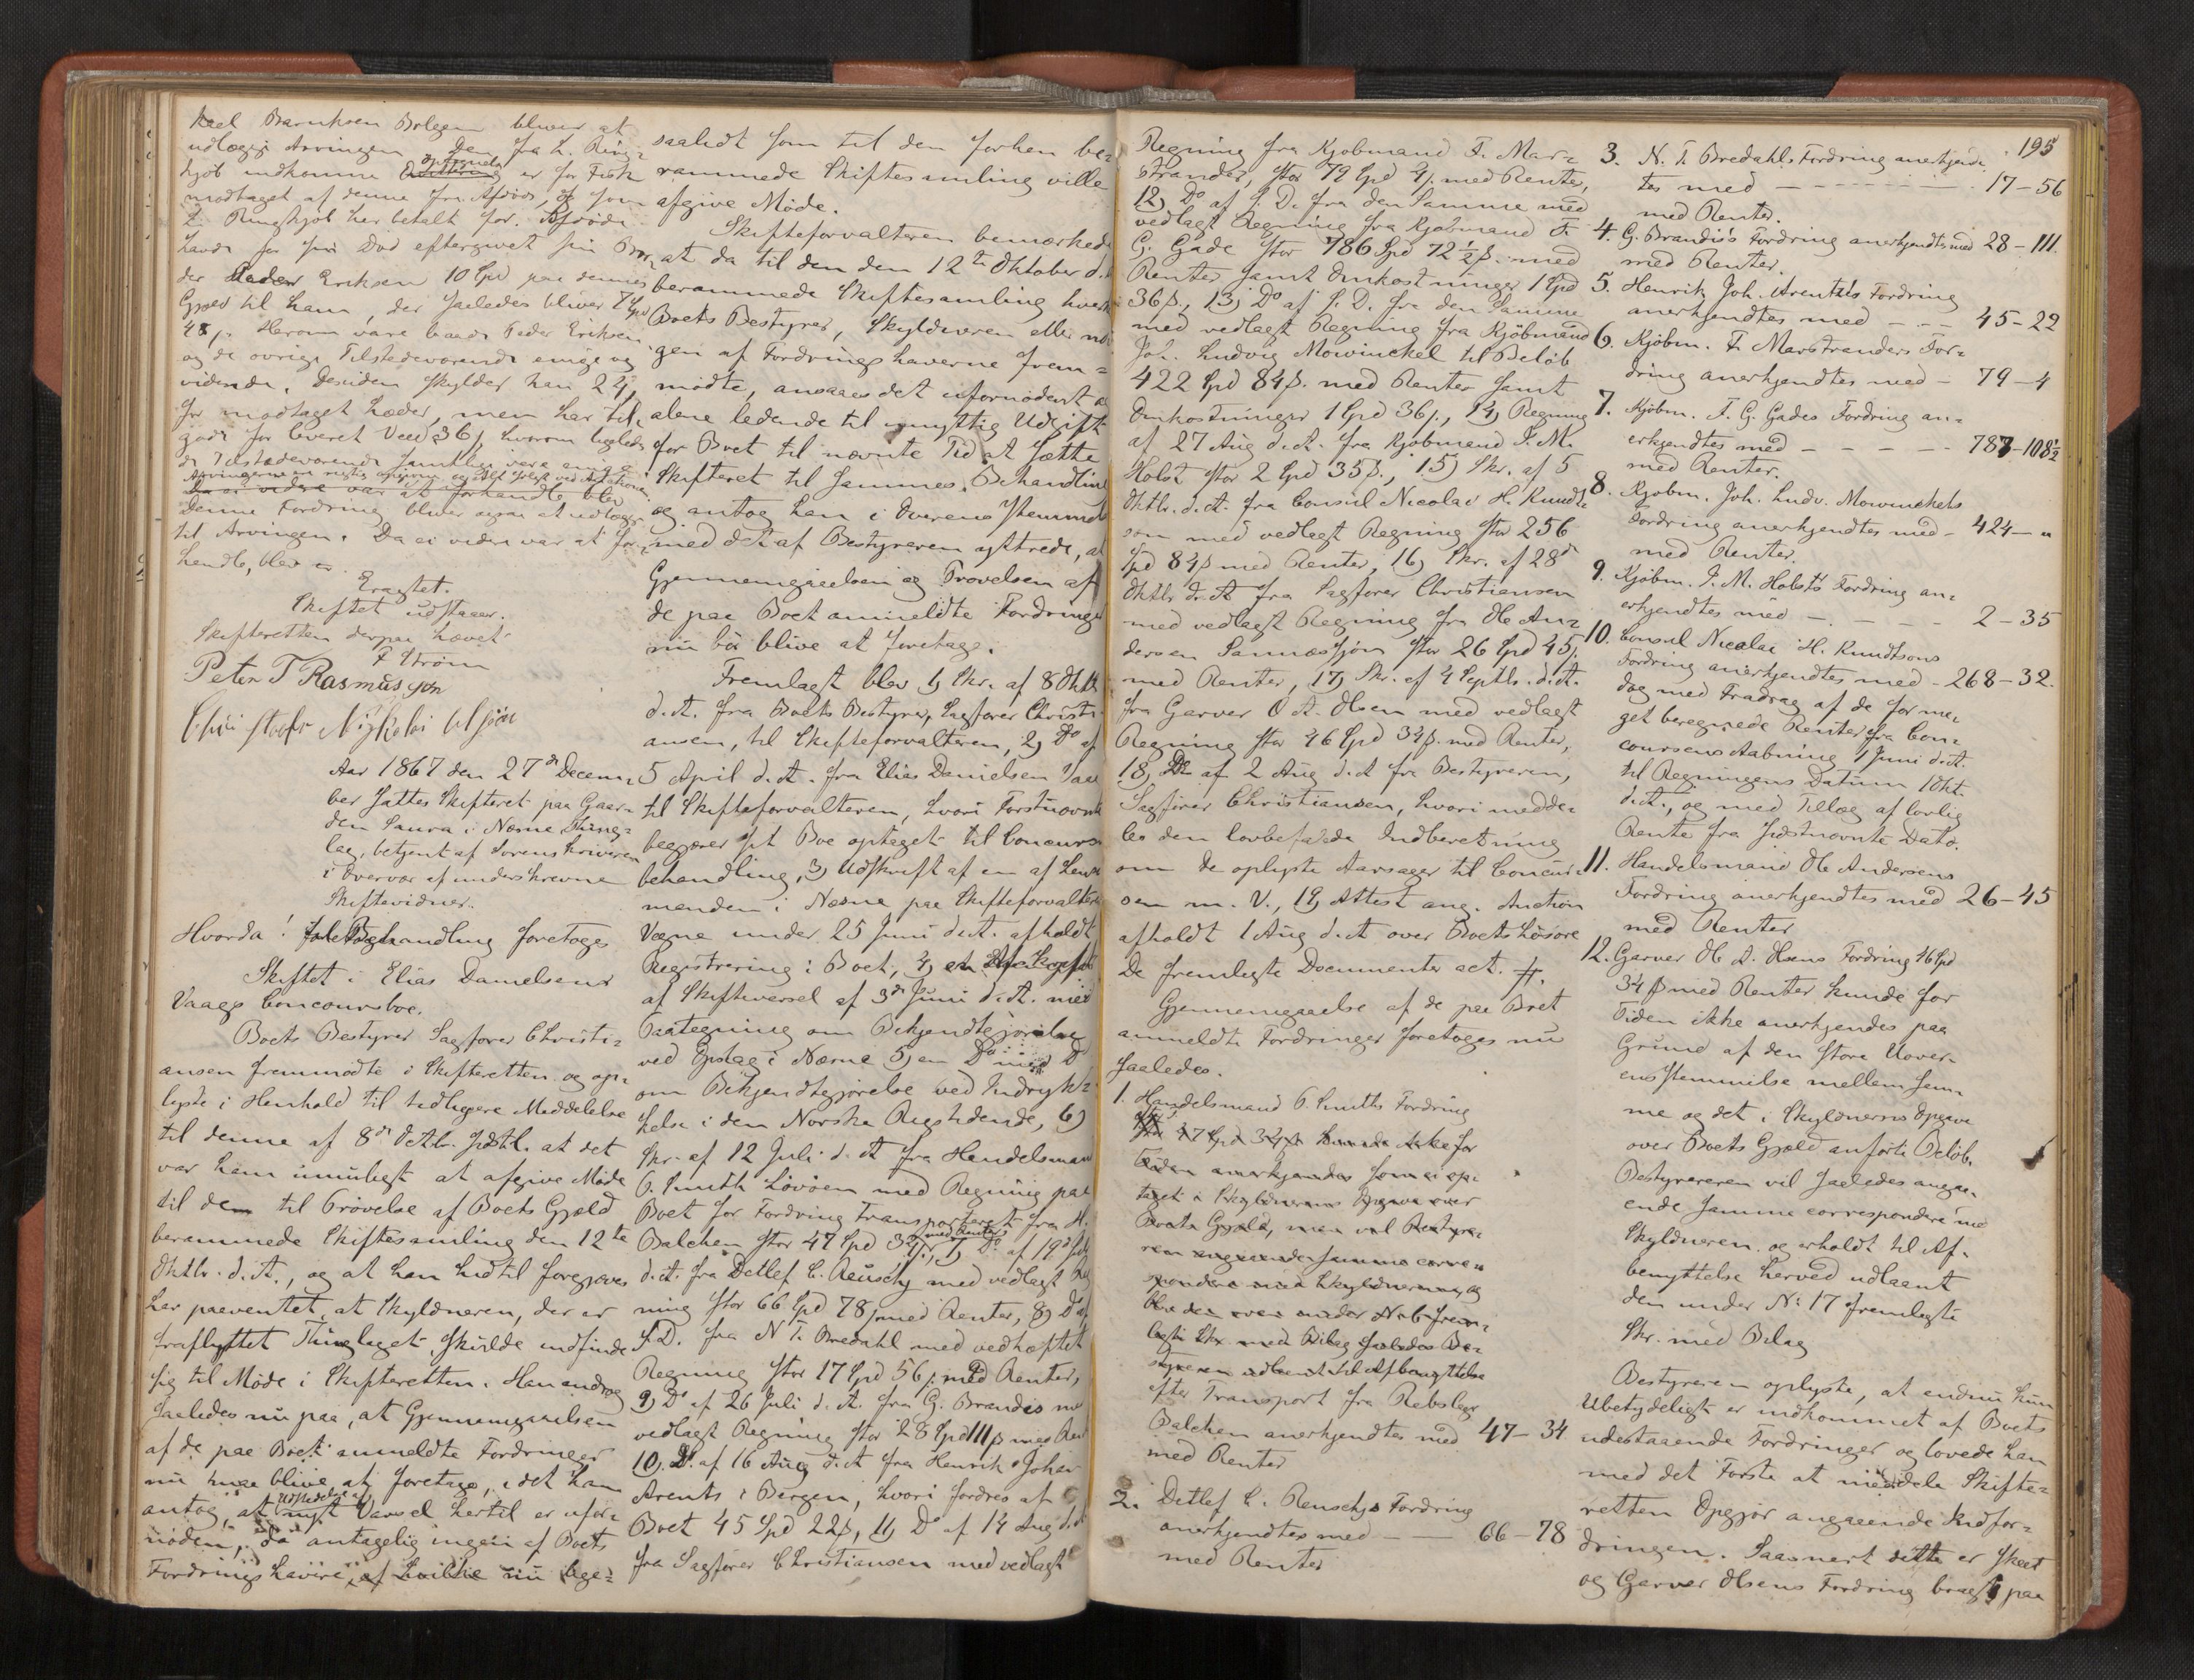 Karl Barnhsen Bolgen bliver at
udlægge Arvingen. Den fra L. Ring-
kjöb indkomne opgivende er for Fisk
modtaget af denne fra Afdøde, og som
L. Ringkjöb har betalt for. Afdøde
havde før sin Död eftergivet sin Bro-
der Peder Eriksen 10 Spd paa dennes
Gjæld til ham, der saaledes bliver 7 Spd
48 s. Herom vare baade Peder Eriksen
og de øvrige Tilstedeværende enige og
vidende. Desuden skylder han 24 s
for modtaget Læder, men har til-
gode for leveret Veed 36 s, hvorom ligeledes
de Tilstedeværende samtlige vare enige.
Denne Fordring bliver ogsaa at udlægge
til Arvingen. Da ei videre var at for-
handle, blev
Eragtet.
Skiftet udstaaer.
Skifteretten derpaa hævet.
P Strøm
Peter T Rasmussøn
Christoffer Nikolai Olsøn
Aar 1867 den 27de Decem-
ber sattes Skifteret paa Gaar-
den Saura i Næsne Thing-
lag, betjent af Sorenskriveren
i Overvær af underskrevne
Skiftevidner.
Hvorda! foretoges
Skiftet i Elias Danielsens
Vaags Concoursboe.
Boets Bestyrer Sagfører Christi-
ansen fremmødte i Skifteretten og op-
lyste i Henhold til tidligere Meddelelse
til denne af 8de Oktbr. sidstl. at det
var ham umuligt at afgive Møde
til den til Prøvelse af Boets Gjæld
berammede Skiftesamling den 12te
Oktbr. d. A., og at han hidtil forgjæves
har paaventet, at Skyldneren, der er
fraflyttet Thinglaget, skulde indfinde
sig til Møde i Skifteretten. Han androg
saaledes nu paa, at Gjennemgaaelsen
af de paa Boet anmeldte Fordringer
nu maa blive at foretage, idet han
antog, at Udstedelse af nyt Varsel hertil er ufor-
nøden, da antagelig ingen af Boets
Fordringshavere, af hvilke nu lige-
saalidt som til den forhen be-
rammede Skiftesamling ville
afgive Møde.
Skifteforvalteren bemærkede
at da til den den 12te Oktober d. A.
berammede Skiftesamling hverken
Boets Bestyrer, Skyldneren eller no-
gen af Fordringshaverne frem-
mødte, ansaaes det ufornødent og
alene ledende til unyttig Udgift
for Boet til nævnte Tid at sætte
Skifteret til sammes Behandling
og antog han i Overensstemmelse
med det af Bestyreren yttrede, at
Gjennemgaaelsen og Prøvelsen af
de paa Boet anmeldte Fordringer
nu bör blive at foretage.
Fremlagt blev 1) Skr. af 8 Oktbr
d. A. fra Boets Bestyrer, Sagfører Christi-
ansen, til Skifteforvalteren, 2) Do af
5 April d. A. fra Elias Danielsen Vaag
til Skifteforvalteren, hvori Førstnævnte
begjærer sit Boe optaget til Concours-
behandling, 3) Udskrift af en af Lens-
manden i Næsne paa Skifteforvalterens
Vegne under 25 Juni d. A. afholdt
Registrering i Boet, 4)
af Skiftevarsel af 3de Juni d. A. med
Paategning om Bekjendtgjørelse
ved Opslag i Næsne 5) en Do med Do
om Bekjendtgjørelse ved Indryk-
kelse i den Norske Rigstidende, 6)
Skr. af 12 Juli d. A. fra Handelsmand
C. Smith Lövöen med Regning paa
Boet for Fordring transporteret fra H.
Balchen stor 47 Spd 34 s. med Renter, 7) Do af 19de Juli
d. A. fra Detlef C. Reuschs med vedlagt Reg-
ning stor 66 Spd 78 s med Renter, 8) Do af
S. D. fra N T. Bredahl med vedheftet
Regning stor 17 Spd 56 s. med Renter,
9) Do af 26 Juli d. A. fra G. Brandis med
vedlagt Regning stor 28 Spd 111 s med Rent
10) Do. af 16 Aug d. A fra Henrik Johan
Arentz i Bergen, hvori fordres af
Boet 45 Spd 22 s, 11) Do af 14 Aug d. A
fra Sagfører Christiansen med vedlagt
195
Regning fra Kjøbmand F. Mar-
strander, stor 79 Spd 4 s. med Renter,
12) Do af S. D. fra den Samme med
vedlagt Regning fra Kjøbmand F.
G. Gade stor 786 Spd 72½ s. med
Renter samt Omkostninger 1 Spd
36 s., 13) Do af S. D. fra den Samme
med vedlagt Regning fra Kjøbmand
Joh. Ludvig Mowinckel til Beløb
422 Spd 84 s. med Renter samt
Omkostninger 1 Spd 36 s., 14) Regning
af 27 Aug d. A. fra Kjøbmand J. M.
Holst stor 2 Spd 35 s., 15) Skr. af 5
Oktbr. d. A. fra Consul Nicolai H. Knudt-
son med vedlagt Regning stor 256
Spd 84 s med Renter, 16) Skr. af 28de
Oktbr d. A fra Sagfører Christiansen
med vedlagt Regning fra Ole An-
dersen Sannæssjøn stor 26 Spd 45 s.
med Renter, 17) Skr. af 4 Septbr. d. A.
fra Garver O A. Olsen med vedlagt
Regning stor 46 Spd 34 s. med Renter,
18) Do af 2 Aug d. A fra Bestyreren,
Sagfører Christiansen, hvori medde-
les den lovbefalede Indberetning
om de oplyste Aarsager til Concur-
sen m. V., 19) Attest ang. Auction
afholdt 1 Aug d. A over Boets Løsøre
De fremlagte Documenter act.
Gjennemgaaelse af de paa Boet
anmeldte Fordringer foretoges nu
saaledes.
1. Handelsmand C. Smiths Fordring
stor 47 Spd 34 s kunde ikke for
Tiden anerkjendes som ei op-
taget i Skyldnerens Opgave over
Boets Gjæld, men vil Bestyre-
ren angaaende samme corre-
spondere med Skyldneren og
blev den under No 6 frem-
lagte Skr. med Bilag saaledes Be-
styreren udlaant til Afbenyttelse
efter Transport fra Rebslager
Balchen anerkjendtes med 47 – 34
med Renter
2. Detlef C. Reuschs Fordring
anerkjendtes med — 66 – 78
med Renter
3. N. T. Bredahls Fordring anerkjend-
tes med — 17 – 56
med Renter.
4. G. Brandis's Fordring anerkjendtes med 28 – 111.
med Renter.
5. Henrik Joh. Arentz's Fordring
anerkjendtes med — 45 – 22
6. Kjøbm. F. Marstranders For-
dring anerkjendtes med – 79 – 4
7. Kjøbm. F. G. Gades Fordring an-
erkjendtes med — 787 – 108½
med Renter.
8. Kjøbm. Joh. Ludv. Mowinckels
Fordring anerkjendtes med – 424 – "
med Renter.
9. Kjøbm. J. M. Holsts Fordring an-
erkjendtes med — 2 – 35
10. Consul Nicolai H. Knudtsons
Fordring anerkjendtes med – 268 – 32.
dog med Fradrag af de for me-
get beregnede Renter fra Con-
coursens Aabning 1 Juni d. A.
til Regningens Datum 1 Okt.
d. A., og med Tillæg af lovlig
Rente fra sidstnævnte Dato.
11. Handelsmand Ole Andersens
Fordring anerkjendtes med 26 – 45
med Renter
12. Garver Ole A. Olsens Fordring 46 Spd
34 s med Renter kunde for
Tiden ikke anerkjendes paa
Grund af den store Uover-
ensstemmelse mellem sam-
me og det i Skyldnerens Opgave
over Boets Gjæld anførte Beløb.
Bestyrereren vil saaledes angaa-
ende samme correspondere med
Skyldneren og erholdt til Af-
benyttelse herved udlaant
den under No 17 fremlagte
Skr. med Bilag
Bestyreren oplyste, at endnu kun
Ubetydeligt er indkommet af Boets
udestaaende Fordringer og lovede han
med det Første at meddele Skifte-
retten Opgjør angaaende Indfor-
dringen. Saasnart dette er skeet
og Garver Olsens Fordring bragt paa